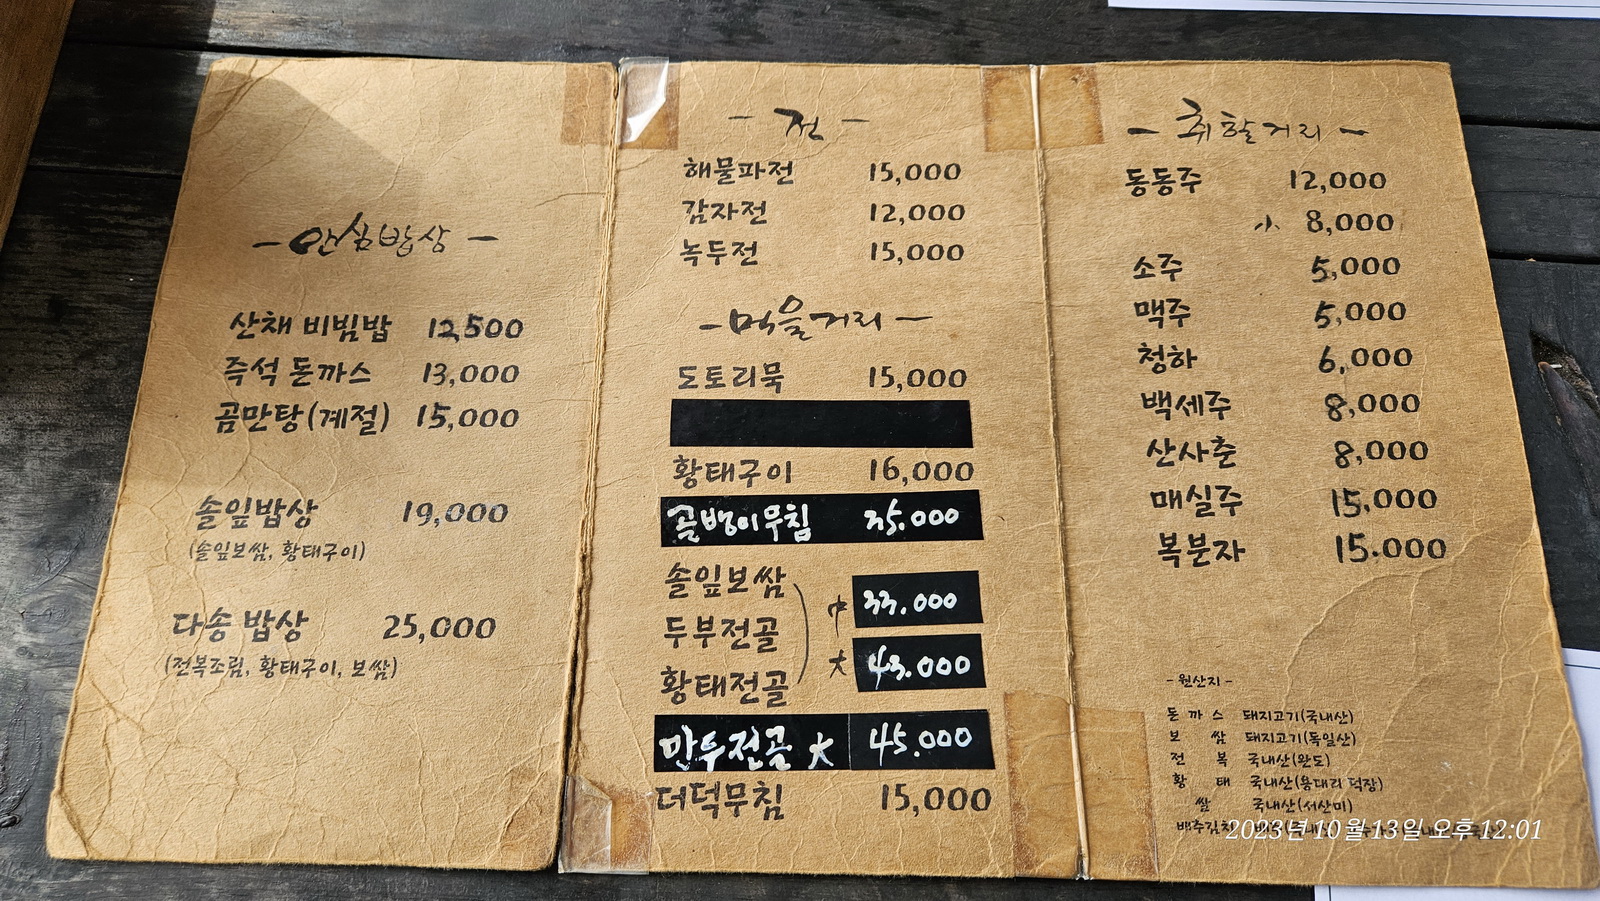 - 안심밥상 -
산채 비빔밥 12,500
즉석 돈까스 13,000
곰만탕(계절) 15,000
솔잎밥상 19,000
(솔잎보쌈, 황태구이)
다송 밥상 25,000
(전복조림, 황태구이, 보쌈)
- 전 -
해물파전 15,000
감자전 12,000
녹두전 15,000
- 먹을거리 -
도토리묵 15,000
황태구이 16,000
골뱅이무침 35.000
솔잎보쌈
두부전골
황태전골
中 33.000
大 43.000
만두전골 大 45.000
더덕무침 15,000
- 취할거리 -
동동주 12,000
小 8,000
소주 5,000
맥주 5,000
청하 6,000
백세주 8,000
산사춘 8,000
매실주 15,000
복분자 15.000
- 원산지 -
돈 까 스 돼지고기(국내산)
보 쌈 돼지고기(독일산)
전 복 국내산(완도)
황 태 국내산(용대리 덕장)
쌀 국내산(서산미)
배추김치
2023년 10월 13일 오후 12:01